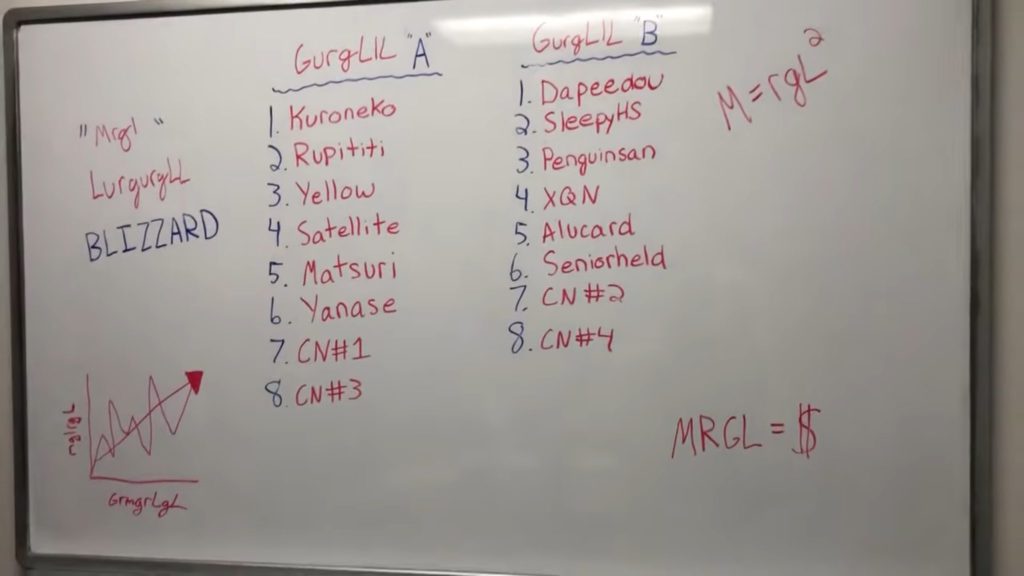 "Mrgl"
LurgurgLL
BLIZZARD
GurgLIL "A"
1. Kuroneko
2. Rupititi
3. Yellow
4. Satellite
5. Matsuri
6. Yanase
7. CN#1
8. CN#3
GurgLIL "B"
1. Dapeedou
2. SleepyHS
3. Penguinsan
4. XQN
5. Alucard
6. Seniorheld
7. CN#2
8. CN#4
M=rgL²
GrmgrLgL
MRGL = $